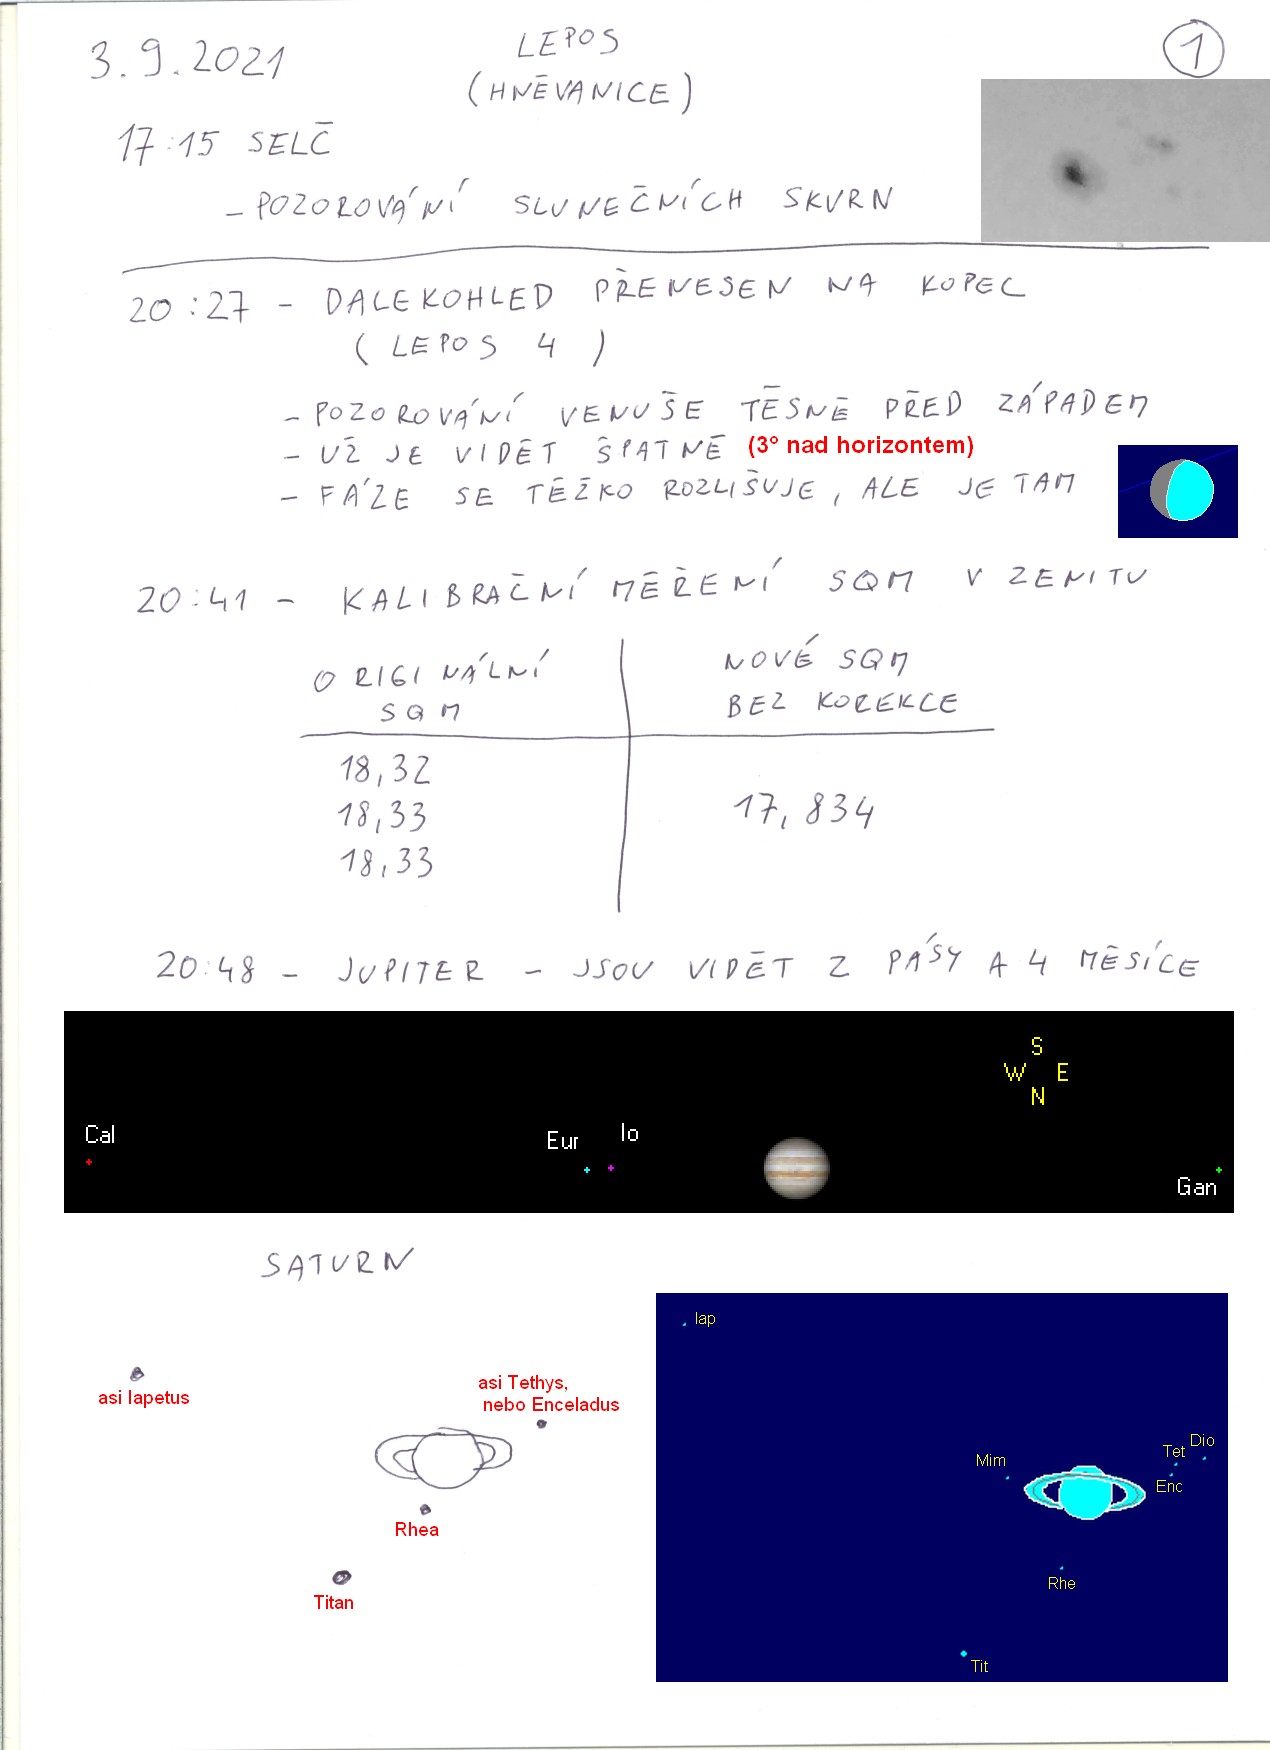 3.9.2021
LEPOS
(HNĚVANICE)
1
17:15 SELČ
- POZOROVÁNÍ SLUNEČNÍCH SKVRN
20:27 - DALEKOHLED PŘENESEN NA KOPEC
(LEPOS 4)
- POZOROVÁNÍ VENUŠE TĚSNĚ PŘED ZÁPADEM
- UŽ JE VIDĚT ŠPATNĚ (3° nad horizontem)
- FÁZE SE TĚŽKO ROZLIŠUJE, ALE JE TAM
20:41 - KALIBRAČNÍ MĚŘENÍ SQM V ZENITU
ORIGINÁLNÍ
SQM
NOVÉ SQM
BEZ KOREKCE
18,32
18,33
18,33
17,834
20:48 - JUPITER - JSOU VIDĚT 2 PÁSY A 4 MĚSÍCE
S
W E
N
Cal
Eur
Io
Gan
SATURN
asi Iapetus
asi Tethys,
nebo Enceladus
Rhea
Titan
Iap
Mim
Tet
Dio
Enc
Rhe
Tit